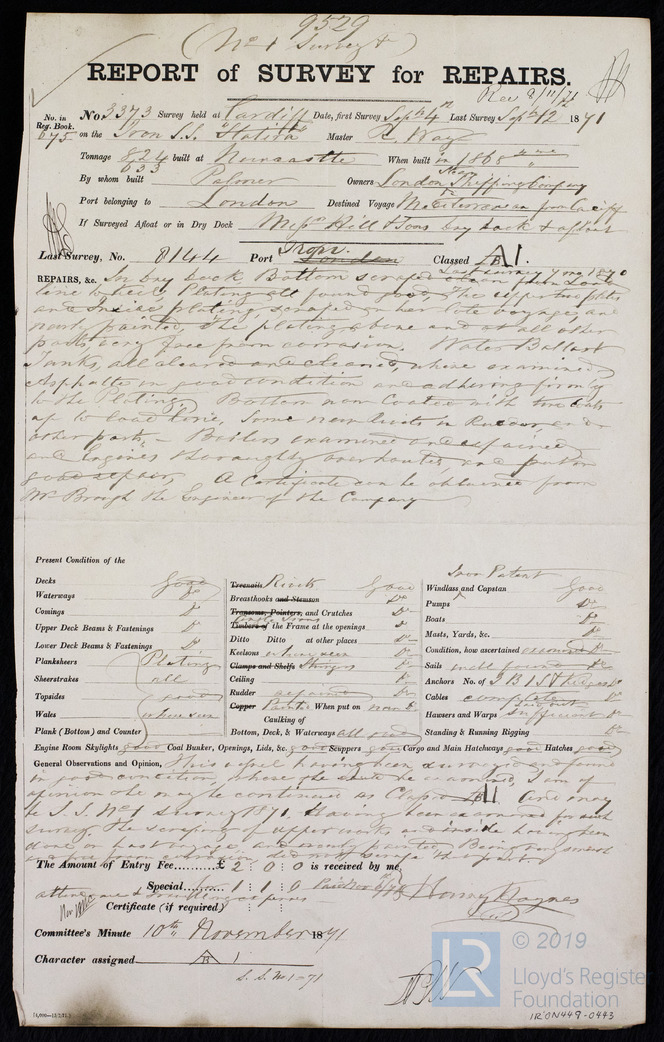 9529
(No 1 Survey)
REPORT of SURVEY for REPAIRS.
Rec 8/11/71
No. in Reg. Book. 675
No. 3373 Survey held at Cardiff Date, first Survey Septr 4th Last Survey Septr 12 1871
on the Iron S.S. Master R. Way
Tonnage 824 built at Newcastle When built in 1868
633
By whom built Palmer Owners London Shipping Company
Port belonging to London Destined Voyage Mediterranean from Cardiff
If Surveyed Afloat or in Dry Dock Messrs Hill & Sons Dry dock & afloat
Last Survey, No. 8144 Port London Classed A1.
REPAIRS, &c. In Dry dock Bottom scraped clean from Load
line to Keel, Plating all found good, The upper
and Inside plating, scraped on her late voyage, and
newly painted, the plating above and at all other
parts, very free from corrosion. Water Ballast
Tanks, all cleared and cleaned, where examined
Asphalte in good condition and adhering firmly
to the Plating, Bottom now Coated with two coats
up to load line, Some new Rivets in Rudder, and
other parts, Boilers examined and repaired
and Engines thoroughly overhauled, and put in
good repair, A Certificate can be obtained from
Mr Brough the Engineer of the Company
Present Condition of the
Decks Good
Waterways Do
Comings Do
Upper Deck Beams & Fastenings Do
Lower Deck Beams & Fastenings Do
Planksheers Plating
Sheerstrakes all
Topsides good
Wales where seen
Plank (Bottom) and Counter
Treenails Rivets Good
Breasthooks and Stemson Do
Transoms, Pointers, and Crutches Do
Timbers of the Frame at the openings Do
Ditto Ditto at other places Do
Keelsons where seen Do
Clamps and Shelfs Stringers Do
Ceiling Do
Rudder repaired Do
Copper Paint When put on now
Caulking of
Bottom, Deck, & Waterways all good
Iron Patent
Windlass and Capstan Good
Pumps Do
Boats Do
Masts, Yards, &c. Do
Condition, how ascertained examined Do
Sails well found Do
Anchors No. of 3 B 1 S & Kedges Do
Cables complete Do
Hawsers and Warps sufficient Do
Standing & Running Rigging Do
Engine Room Skylights good Coal Bunker, Openings, Lids, &c. good Scuppers good Cargo and Main Hatchways good Hatches good
General Observations and Opinion, This vessel having been surveyed and found
in good condition, where she could be examined, I am of
opinion she may be continued as Classed A1. And may
be S.S. No 1 Survey 1871. Having been examined for such
survey. The scraping of upper works and inside having been
done on last voyage, and newly painted, Being
and free from corrosion, did not scrape the parts
The Amount of Entry Fee......£ 2 : 0 : 0 is received by me,
Special...... 1 : 1 : 0
Certificate (if required)
Henry Haynes
Committee's Minute 10th November 1871
Character assigned A 1
S.S. No 1-71
© 2019
LR
Lloyd's Register
Foundation
IRON449-0443